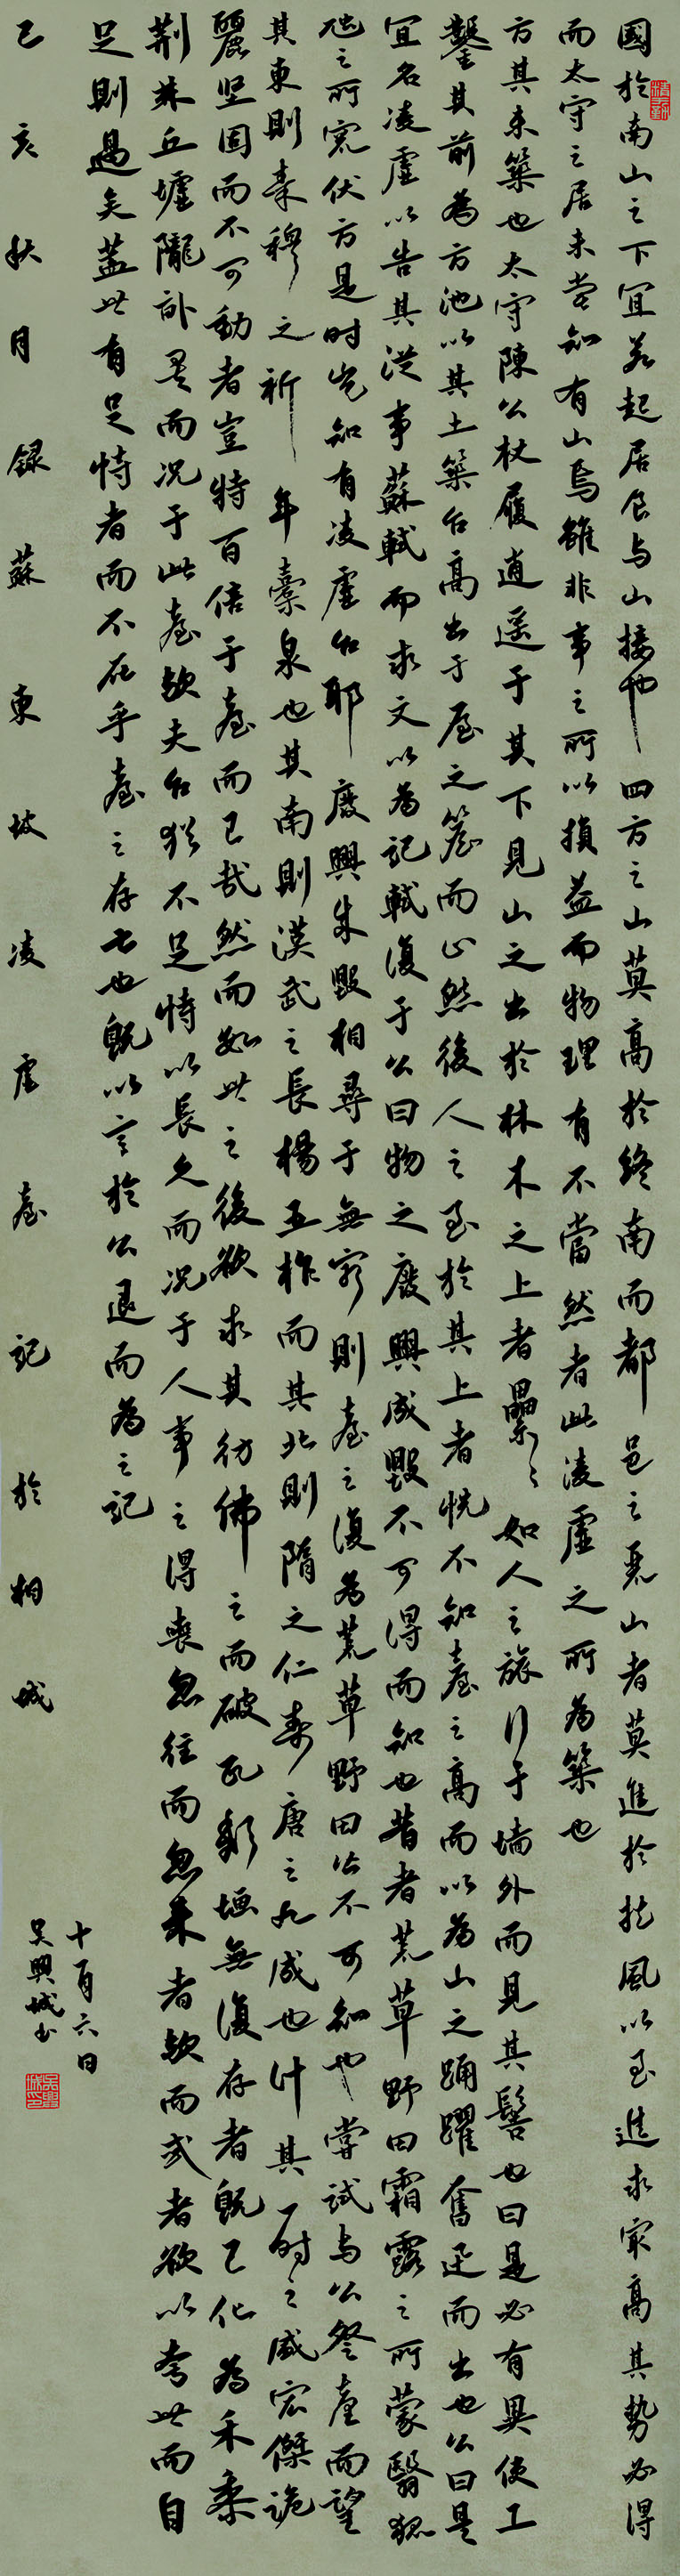 國於南山之下宜若起居食与山接也四方之山莫高於終南而都邑之麗山者莫進於扶風以至進求最高其勢必得
而太守之居未嘗知有山焉雖非事之所以損益而物理有不當然者此凌虛之所為築也
方其未築也太守陳公杖履逍遥于其下見山之出於林木之上者纍〻如人之旅行于墻外而見其髻也曰是必有異使工
鑿其前為方池以其土築台高出于屋之簷而止然後人之至於其上者恍不知臺之高而以為山之踊躍奮迅而出也公曰是
宜名凌虛以告其從事蘇軾而求文以為記軾復于公曰物之廢興成毀不可得而知也昔者荒草野田霜露之所蒙翳狐
虺之所竄伏方是时豈知有凌虛台耶廢興成毀相尋于無窮則臺之復為荒草野田皆不可知也嘗試与公登臺而望
其東則秦穆之祈年橐泉也其南則漢武之長楊五柞而其北則隋之仁寿唐之九成也计其一时之盛宏傑诡
麗坚固而不可動者豈特百倍于臺而已哉然而數世之後欲求其彷佛之而破瓦颓垣無復存者既已化為禾黍
荆棘丘墟隴畝矣而况于此臺歟夫台猶不足恃以長久而况于人事之得喪忽往而忽来者歟而或者欲以夸世而自
足則過矣蓋世有足恃者而不在乎臺之存亡也既以言於公退而為之記
己亥秋月録蘇東坡凌虛臺記於相城
十一月六日
吴興城书